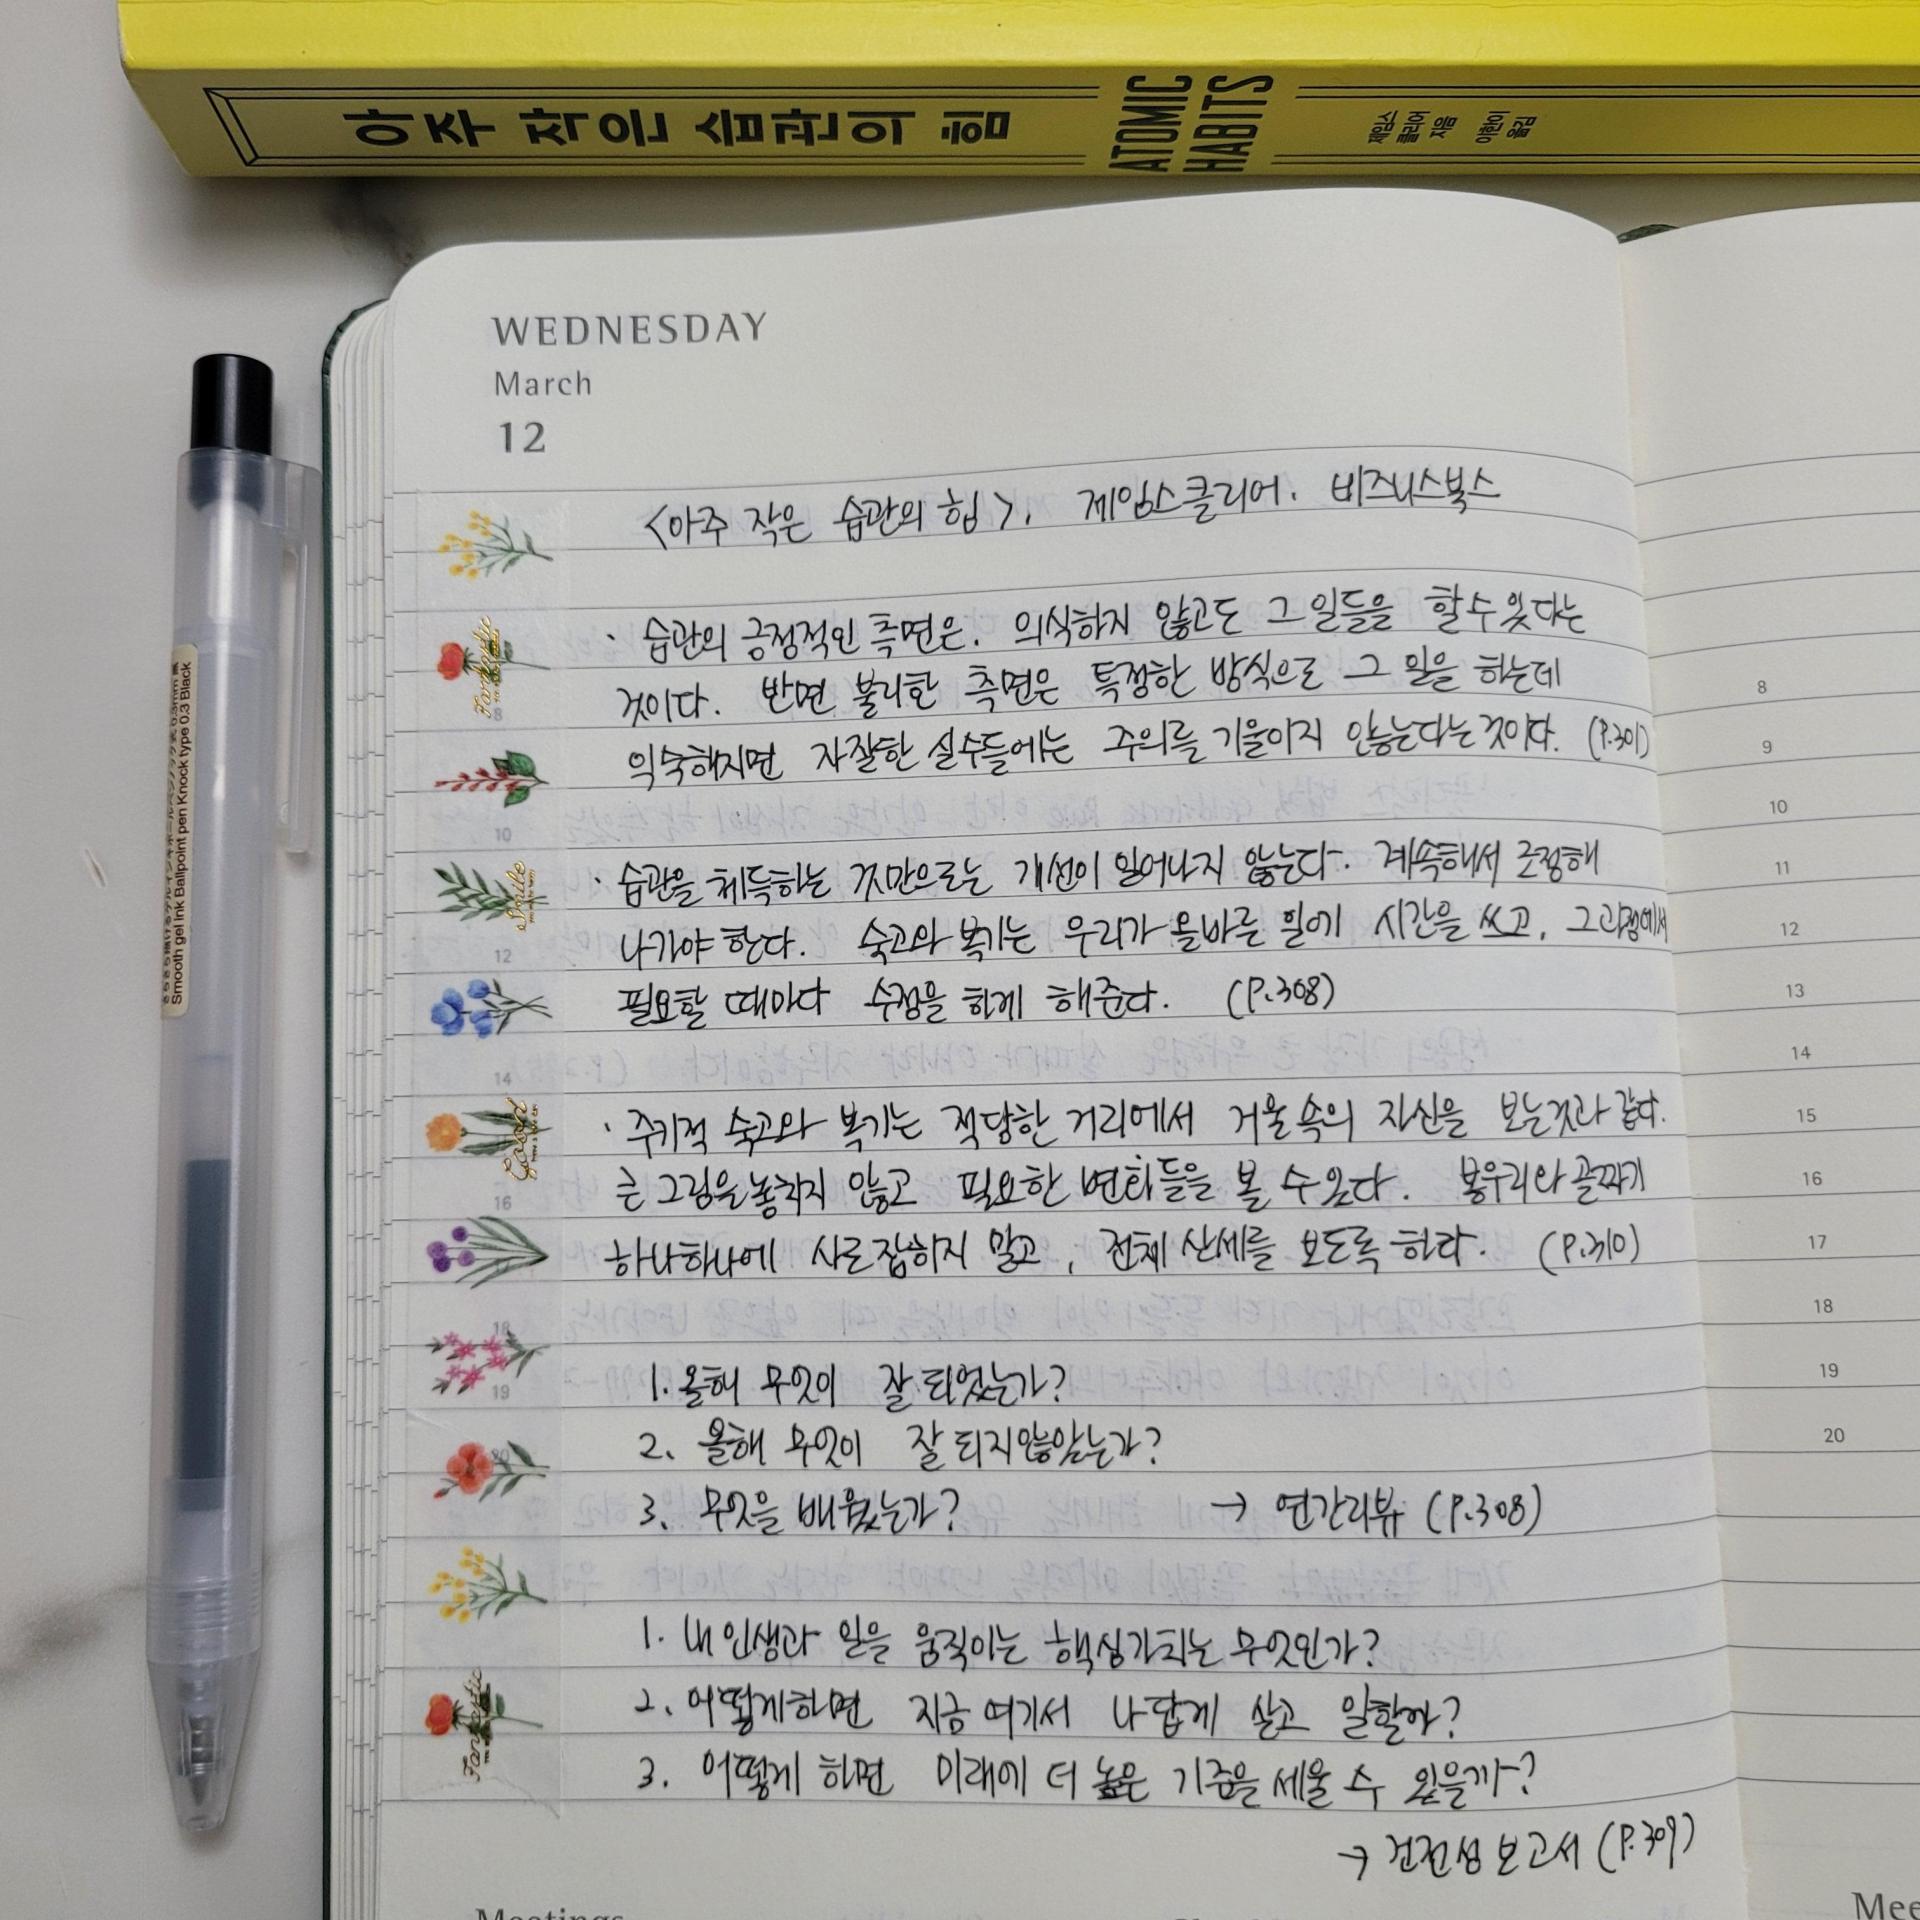 아주 작은 습관의 힘
ATOMIC
HABITS
제임스
클리어
지음
이한이
옮김
Smooth gel ink Ballpoint pen Knock type 0.3 Black
WEDNESDAY
March
12
<아주 작은 습관의 힘>, 제임스클리어. 비즈니스북스
· 습관의 긍정적인 측면은. 의식하지 않고도 그 일들을 할수있다는
것이다. 반면 불리한 측면은 특정한 방식으로 그 일을 하는데
익숙해지면 자잘한 실수들에는 주의를 기울이지 않는다는것이다. (P.301)
· 습관을 체득하는 것만으로는 개선이 일어나지 않는다. 계속해서 조정해
나가야 한다. 숙고와 복기는 우리가 올바른 일에 시간을 쓰고, 그과정에서
필요할 때마다 수정을 하게 해준다. (P.308)
· 주기적 숙고와 복기는 적당한 거리에서 거울속의 자신을 보는것과 같다.
큰 그림을놓치지 않고 필요한 변화들을 볼 수있다. 봉우리와 골짜기
하나하나에 사로잡히지 말고, 전체 산세를 보도록 하라. (P.310)
1. 올해 무엇이 잘 되었는가?
2. 올해 무엇이 잘 되지않았는가?
3. 무엇을 배웠는가? → 연간리뷰 (P.308)
1. 내 인생과 일을 움직이는 핵심가치는 무엇인가?
2. 어떻게하면 지금 여기서 나답게 살고 일할까?
3. 어떻게 하면 미래에 더 높은 기준을 세울 수 있을까?
→ 건전성 보고서 (P.309)
Fantastic
Smile
Good
Fantastic
8
10
12
14
16
18
19
20
8
9
10
11
12
13
14
15
16
17
18
19
20